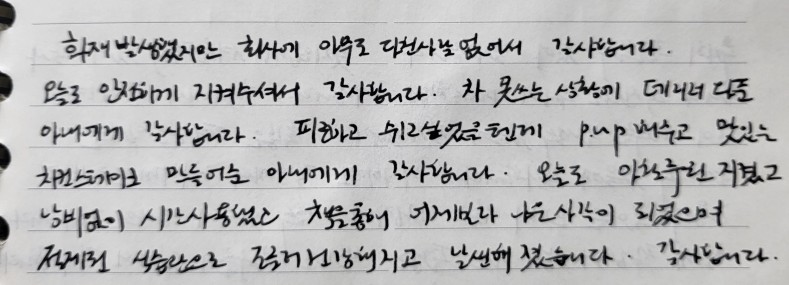 화재 발생했지만 회사에 아무도 다친사람 없어서 감사합니다.
오늘도 안전하게 지켜주셔서 감사합니다. 차 못쓰는 상황에 데리러 와준
아내에게 감사합니다. 피곤하고 쉬고싶었을텐데 p.up 해주고 맛있는
치킨스테이크 만들어준 아내에게 감사합니다. 오늘도 지켰고
낭비없이 시간사용했고 책을통해 어제보다 나은사람이 되었으며
절제된 식습관으로 조금더 건강해지고 날씬해 졌습니다. 감사합니다.